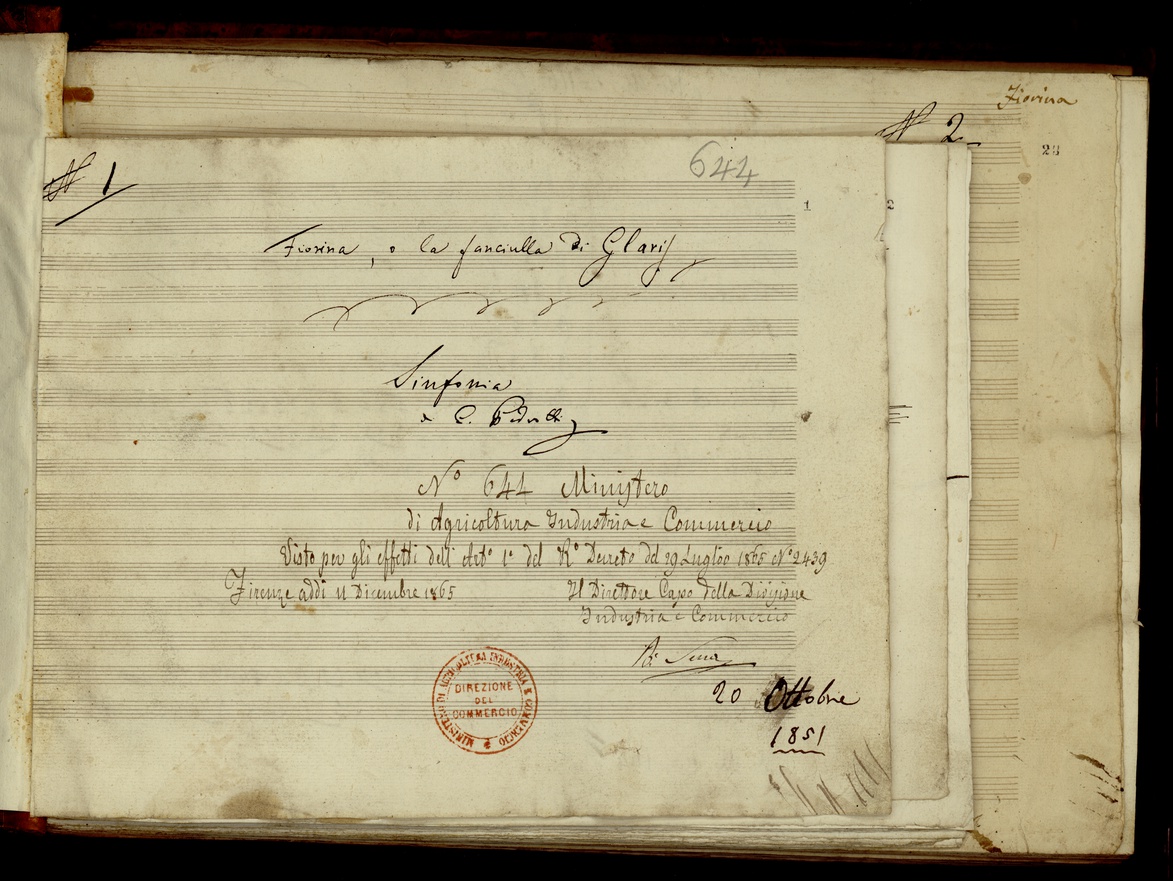 Fiorina
N 2
23
N 1
644
1
2
Fiorina, o la fanciulla di Glaris
Sinfonia
C. Pedrotti
No 644 Ministero
di Agricoltura Industria e Commercio
Visto per gli effetti dell' Arto 1o del Ro Decreto del 29 Luglio 1865 No 2439
Firenze addì 11 Dicembre 1865
Il Direttore Capo della Divisione
Industria e Commercio
Serra
MINISTERO DI AGRICOLTURA INDUSTRIA & COMMERCIO
DIREZIONE
DEL
COMMERCIO
20 Ottobre
1851